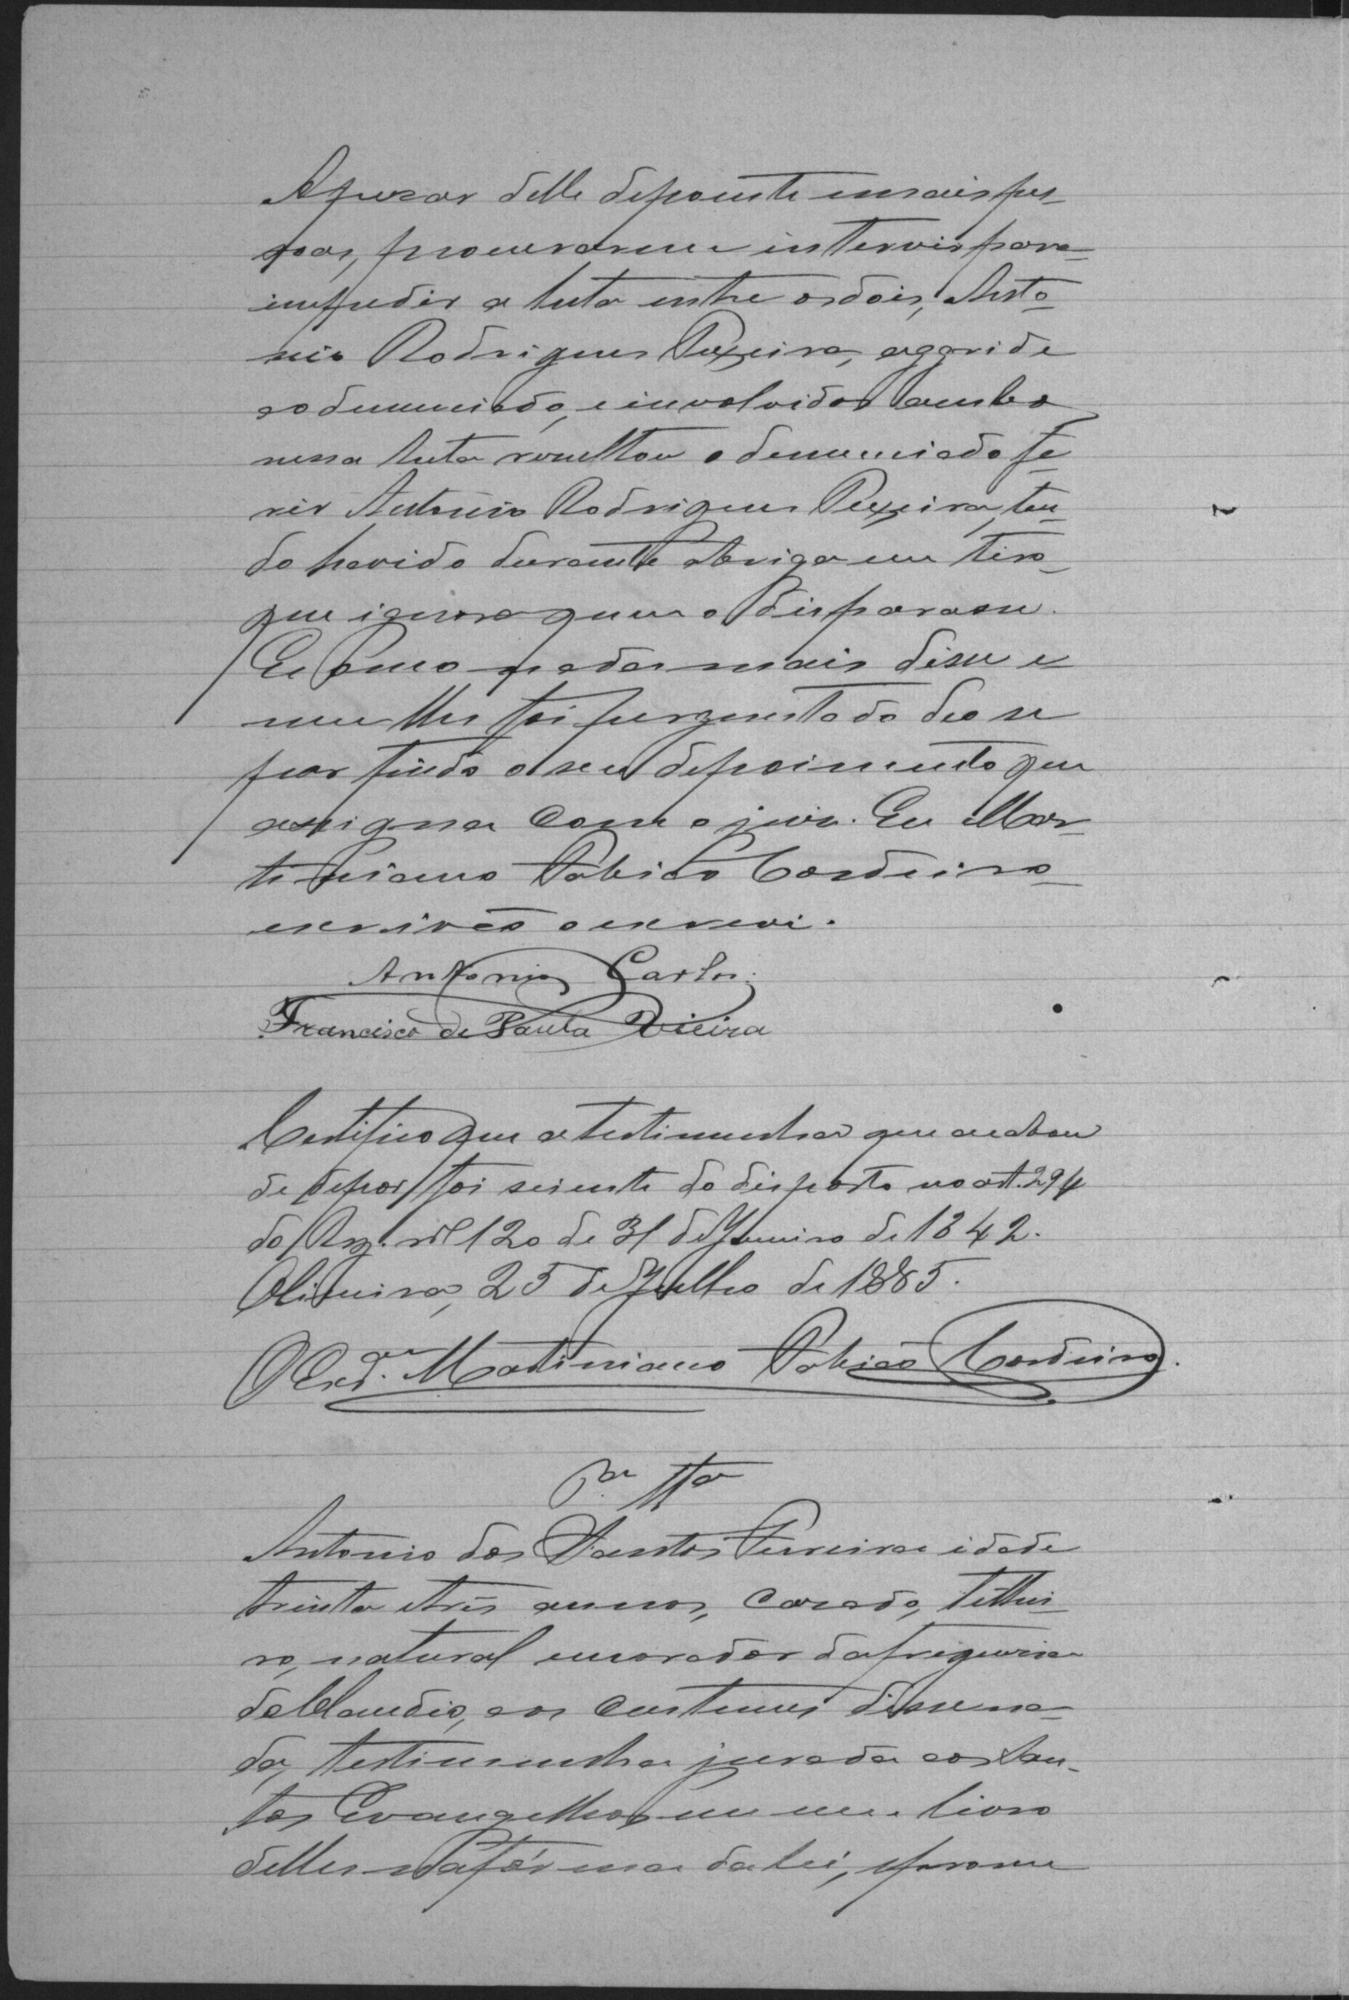 Apezar delle depoente e mais pes-
soas, procurarem intervir para
impedir a luta entre os dois, Anto-
nio Rodrigues Peixeira, aggride
ao denunciado, e involvidos ambos
nessa luta resultou o denunciado fe-
rir Antonio Rodrigues Peixeira, ten-
do havido durante a briga um tiro
que ignora quem o disparasse.
E como nada mais disse e
nem lhe foi perguntado deo se
por findo o seu depoimento que
assigna com o juiz. Eu Mar-
tiniano Cordeiro
escrivão o escrevi.
Antonio Carlos
Francisco de Paula Vieira
Certifico que a testimunha que acabou
de depor foi sciente do disposto no art. 294
do Reg. nº 120 de 31 de Janeiro de 1842.
Oliveira, 25 de Julho de 1885.
O Esc.am Martiniano Cordeiro.
Antonio dos Santos Ferreira idade
trinta e tres annos, casado, telhei-
ro, natural e morador da freguesia
do Claudio, aos costumes disse na-
da, testimunha jurada aos San-
tos Evangelhos em um livro
delles na fórma da lei, e prome